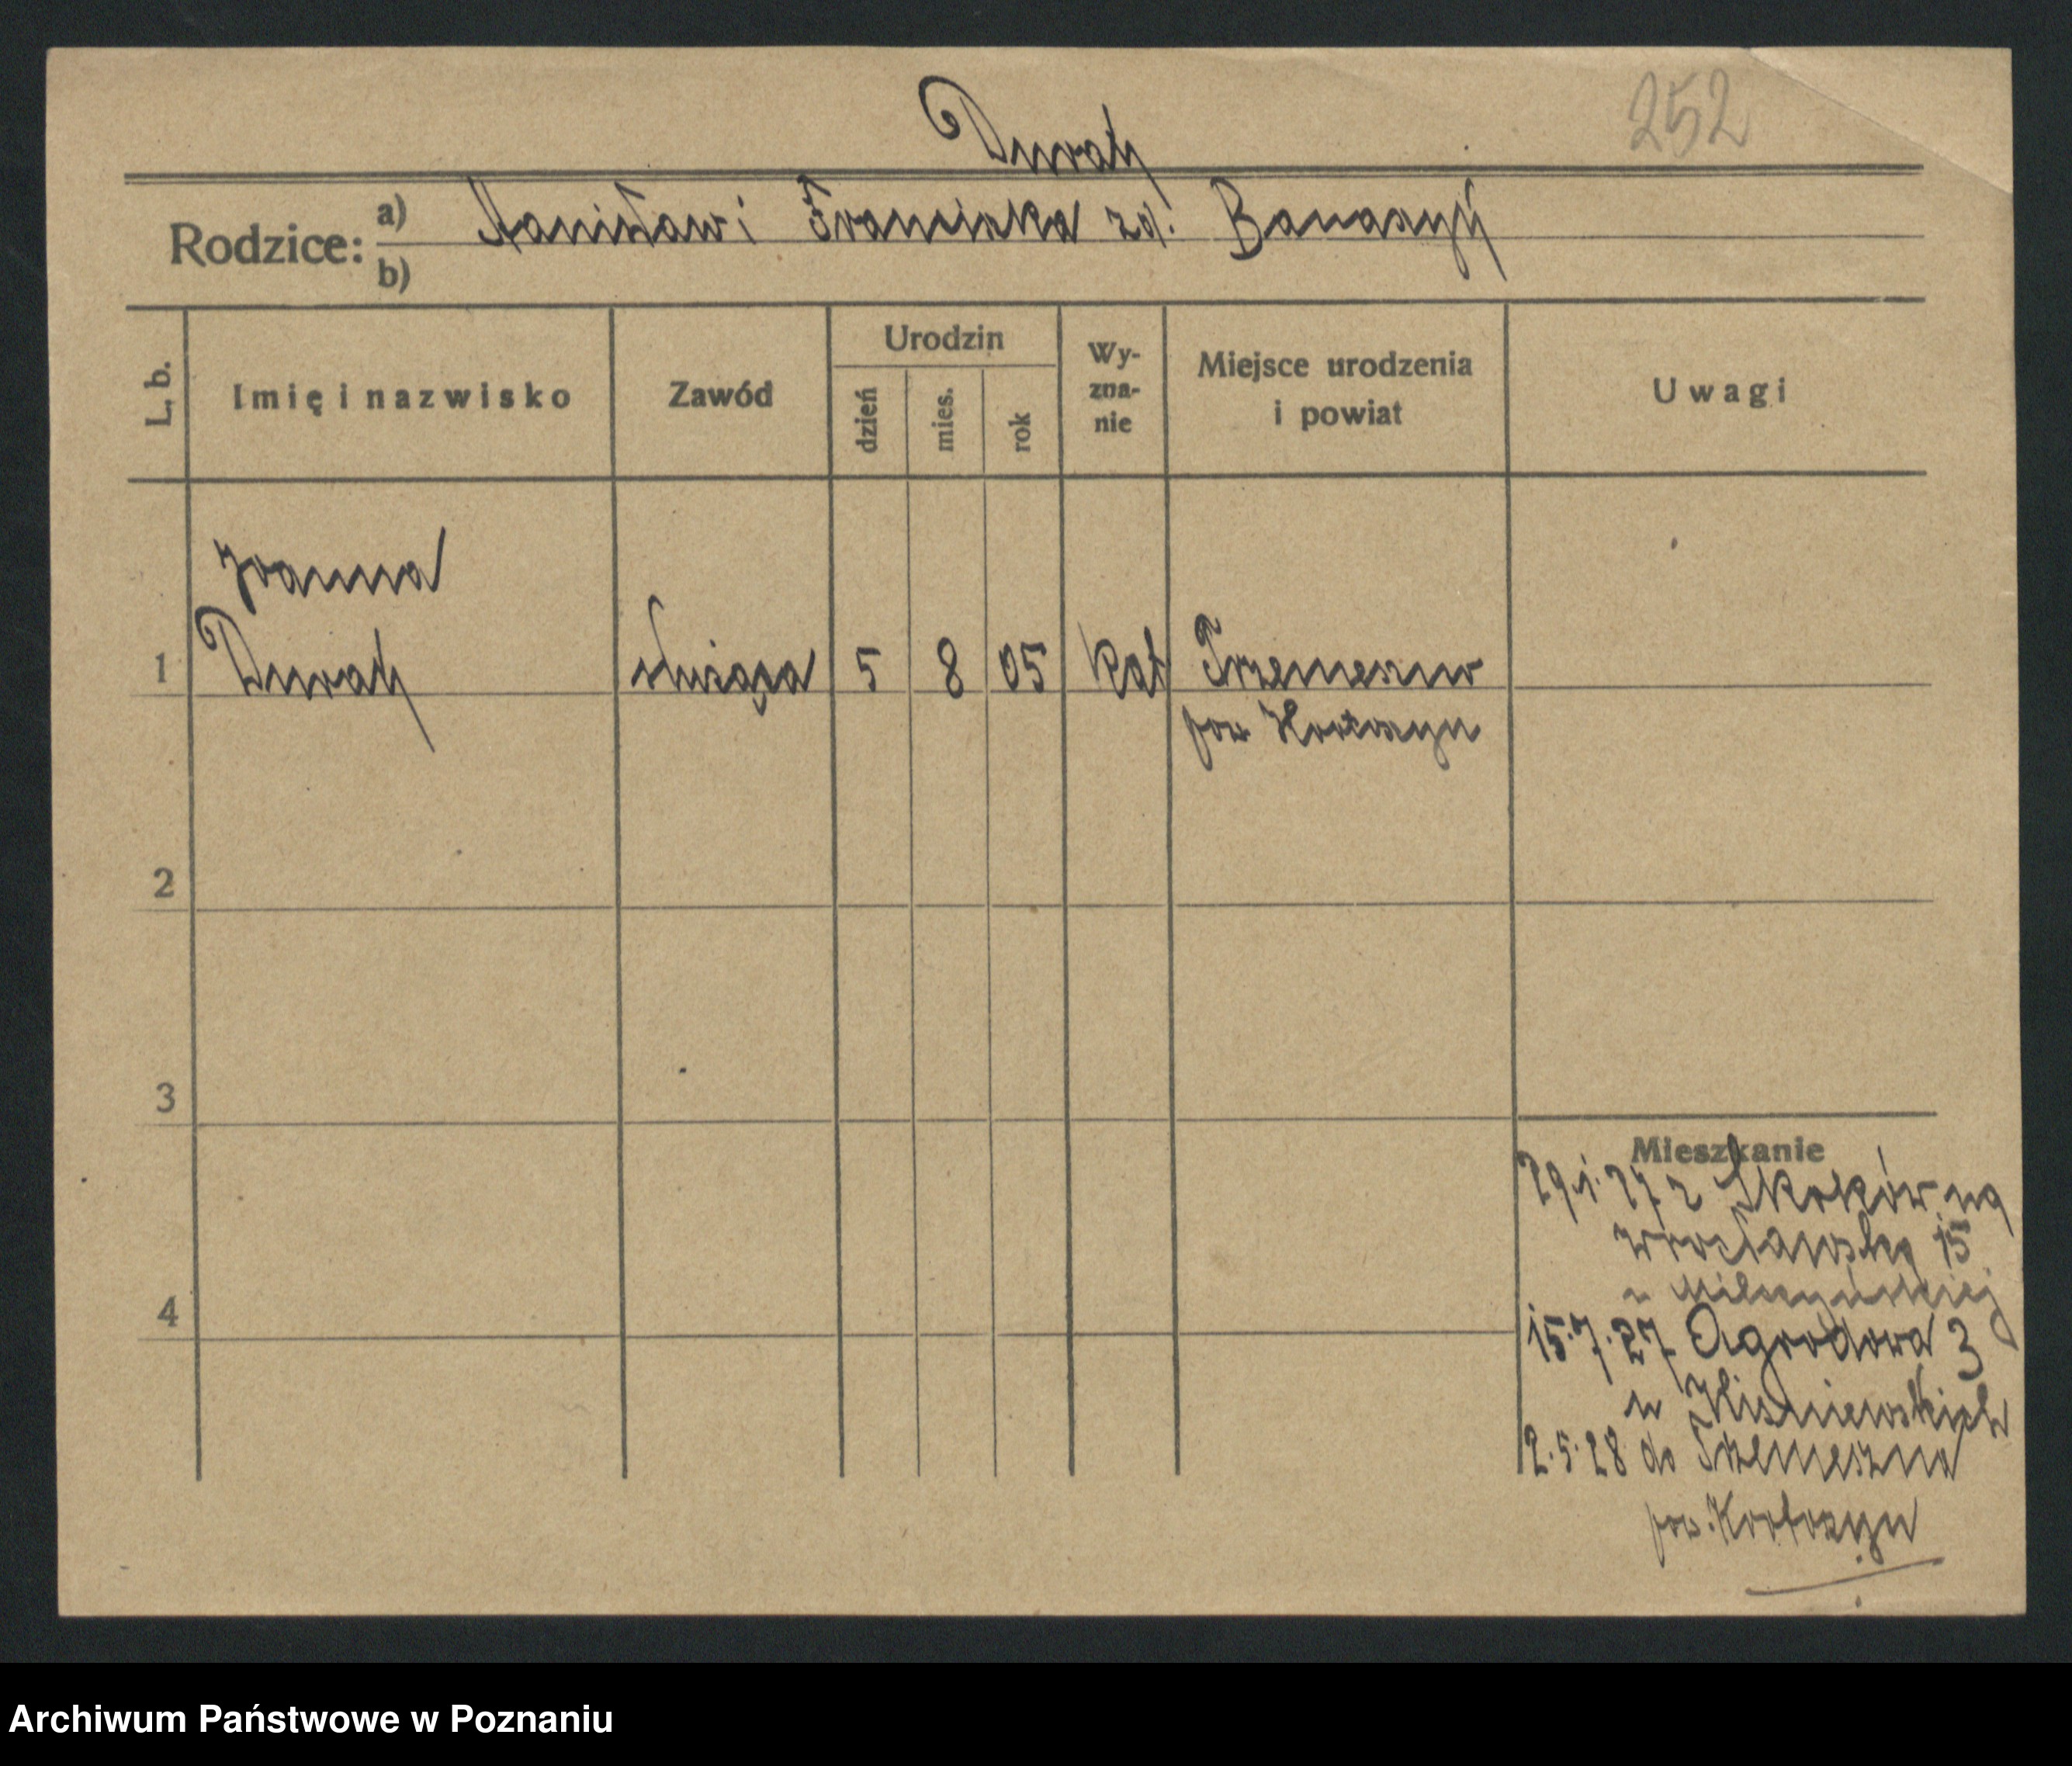 252
Duraj
Rodzice: a) Stanisław i Franciszka zd. Banaszyj
b)
L. b. Imię i nazwisko Zawód Urodzin dzień mies. rok Wy-zna-nie Miejsce urodzenia i powiat Uwagi
Joanna
1 Duraj służąca 5 8 05 kat Trzemeszno
pow Krotoszyn
2
3
Mieszkanie
29.1.27 z Skoków na
Wrocławską 15
4
15.7.27 Ogrodowa 3
u Wiśniewskich
2.5.28 do Trzemeszna
pow. Krotoszyn
Archiwum Państwowe w Poznaniu